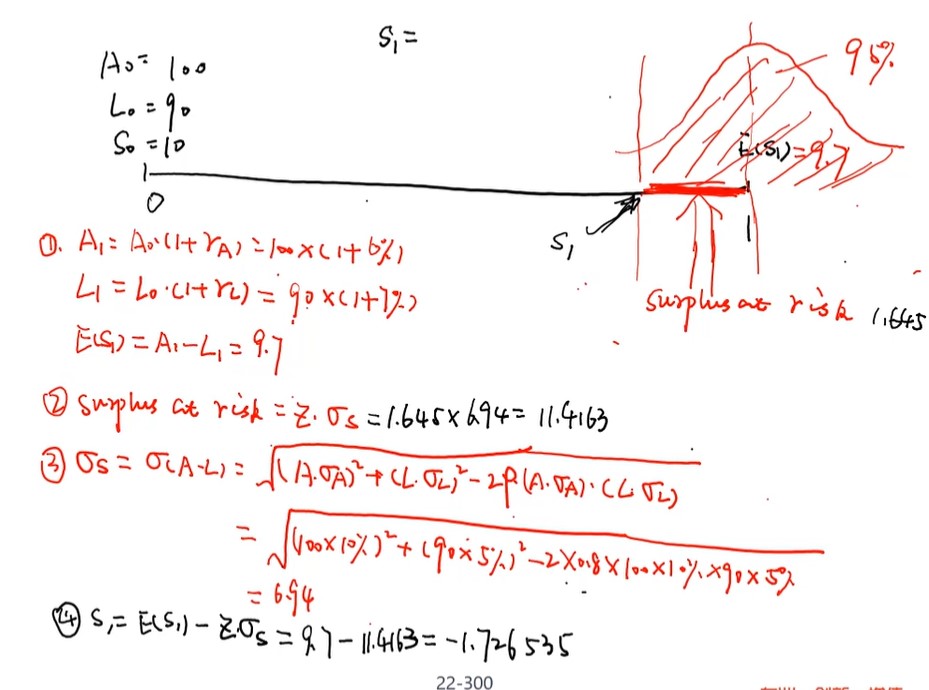 S₁ =
A₀ = 100
L₀ = 90
S₀ = 10
95%
E(S₁) = 9.7
0
S₁
1
surplus at risk 1.645
①. A₁ = A₀·(1+r_A) = 100×(1+6%)
L₁ = L₀·(1+r_L) = 90×(1+7%)
E(S₁) = A₁-L₁ = 9.7
② surplus at risk = Z·σ_S = 1.645×6.94 = 11.4163
③ σ_S = σ(A-L) = √(A·σ_A)²+(L·σ_L)²-2ρ(A·σ_A)·(L·σ_L)
= √(100×10%)²+(90×5%)²-2×0.8×100×10%×90×5%
= 6.94
④ S₁ = E(S₁) - Z·σ_S = 9.7-11.4163 = -1.726535
22-300